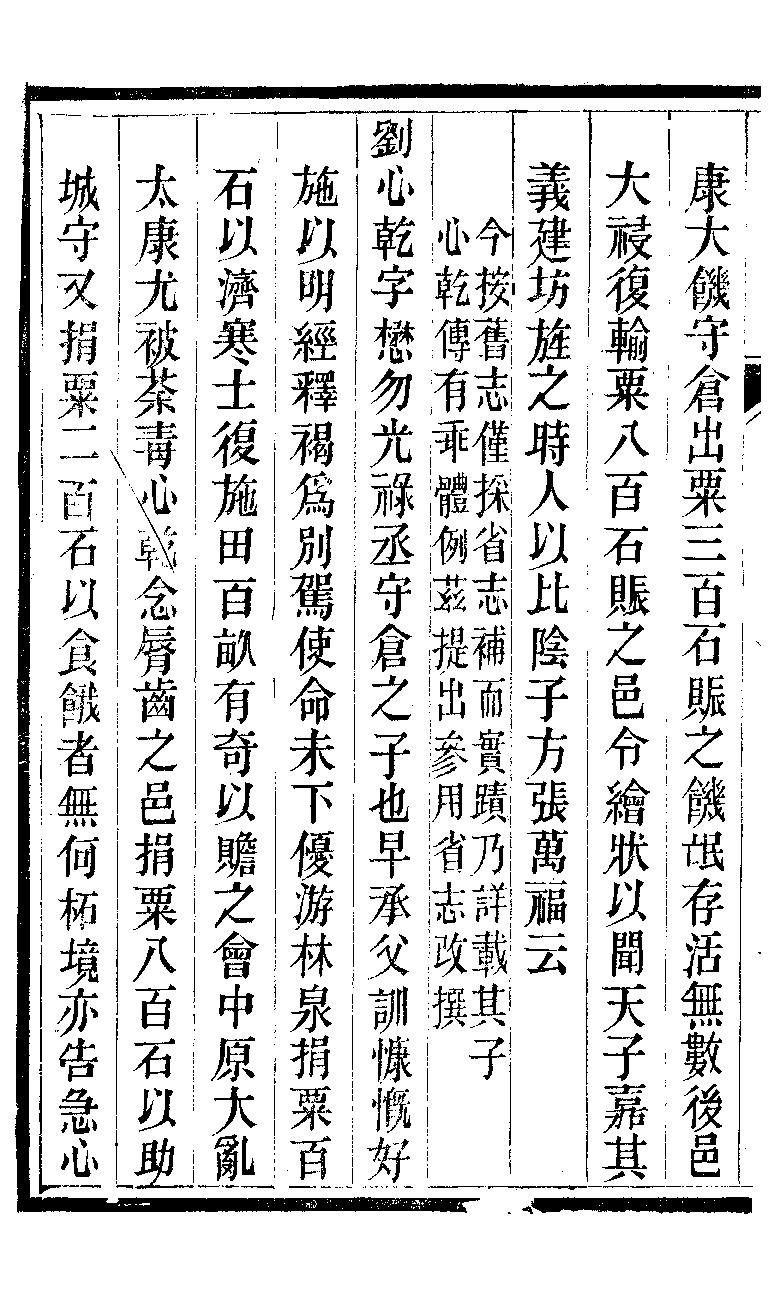 康大饑守倉出粟三百石賑之饑氓存活無數後邑
大祲復輸粟八百石賑之邑令繪狀以聞天子嘉其
義建坊旌之時人以比陰子方張萬福云
今按舊志僅採省志補而實蹟乃詳載其子
心乾傳有乖體例茲提出參用省志改撰
劉心乾字懋勿光祿丞守倉之子也早承父訓慷慨好
施以明經釋褐爲別駕使命未下優游林泉捐粟百
石以濟寒士復施田百畝有奇以贍之會中原大亂
太康尤被荼毒心乾念脣齒之邑捐粟八百石以助
城守又捐粟二百石以食餓者無何柘境亦告急心